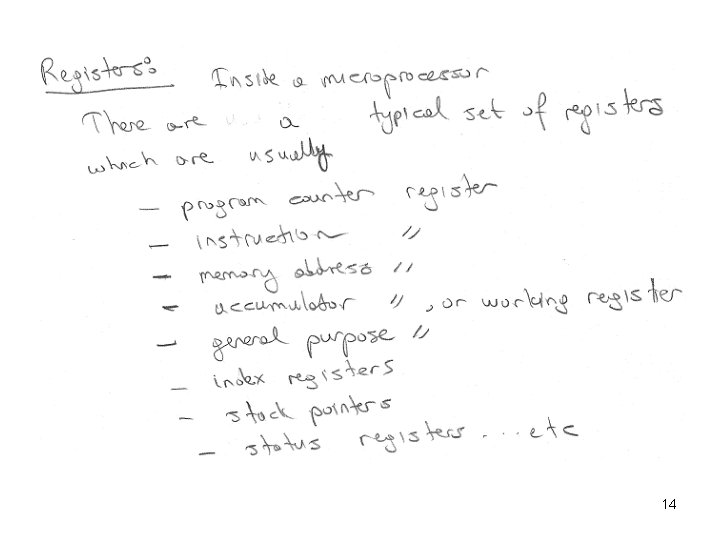 Registers: Inside a microprocessor
There are a typical set of registers
which are usually
– program counter register
– instruction 〃
– memory address 〃
– accumulator 〃 , or working register
– general purpose 〃
– index registers
– stack pointers
– status registers ... etc
14